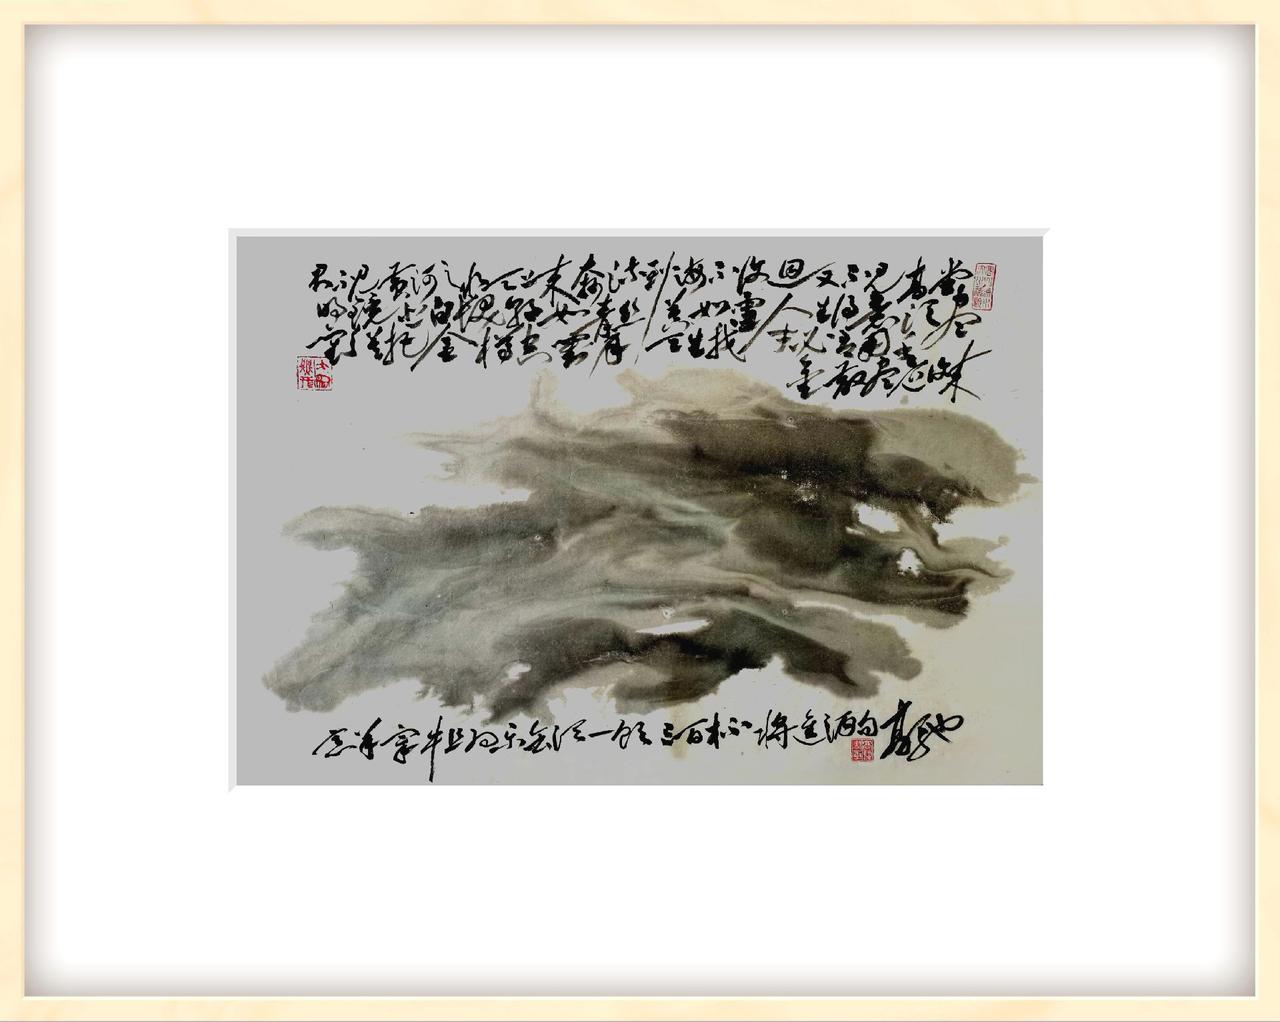 君不见黄河之水天上来奔流到海不復回又不见高堂
明镜悲白髮朝如青丝暮如雪人生得意须尽
欢莫使金樽空对月天生我材必有用千
金散尽还復来
烹羊宰牛且为乐会须一饮三百杯 将进酒句